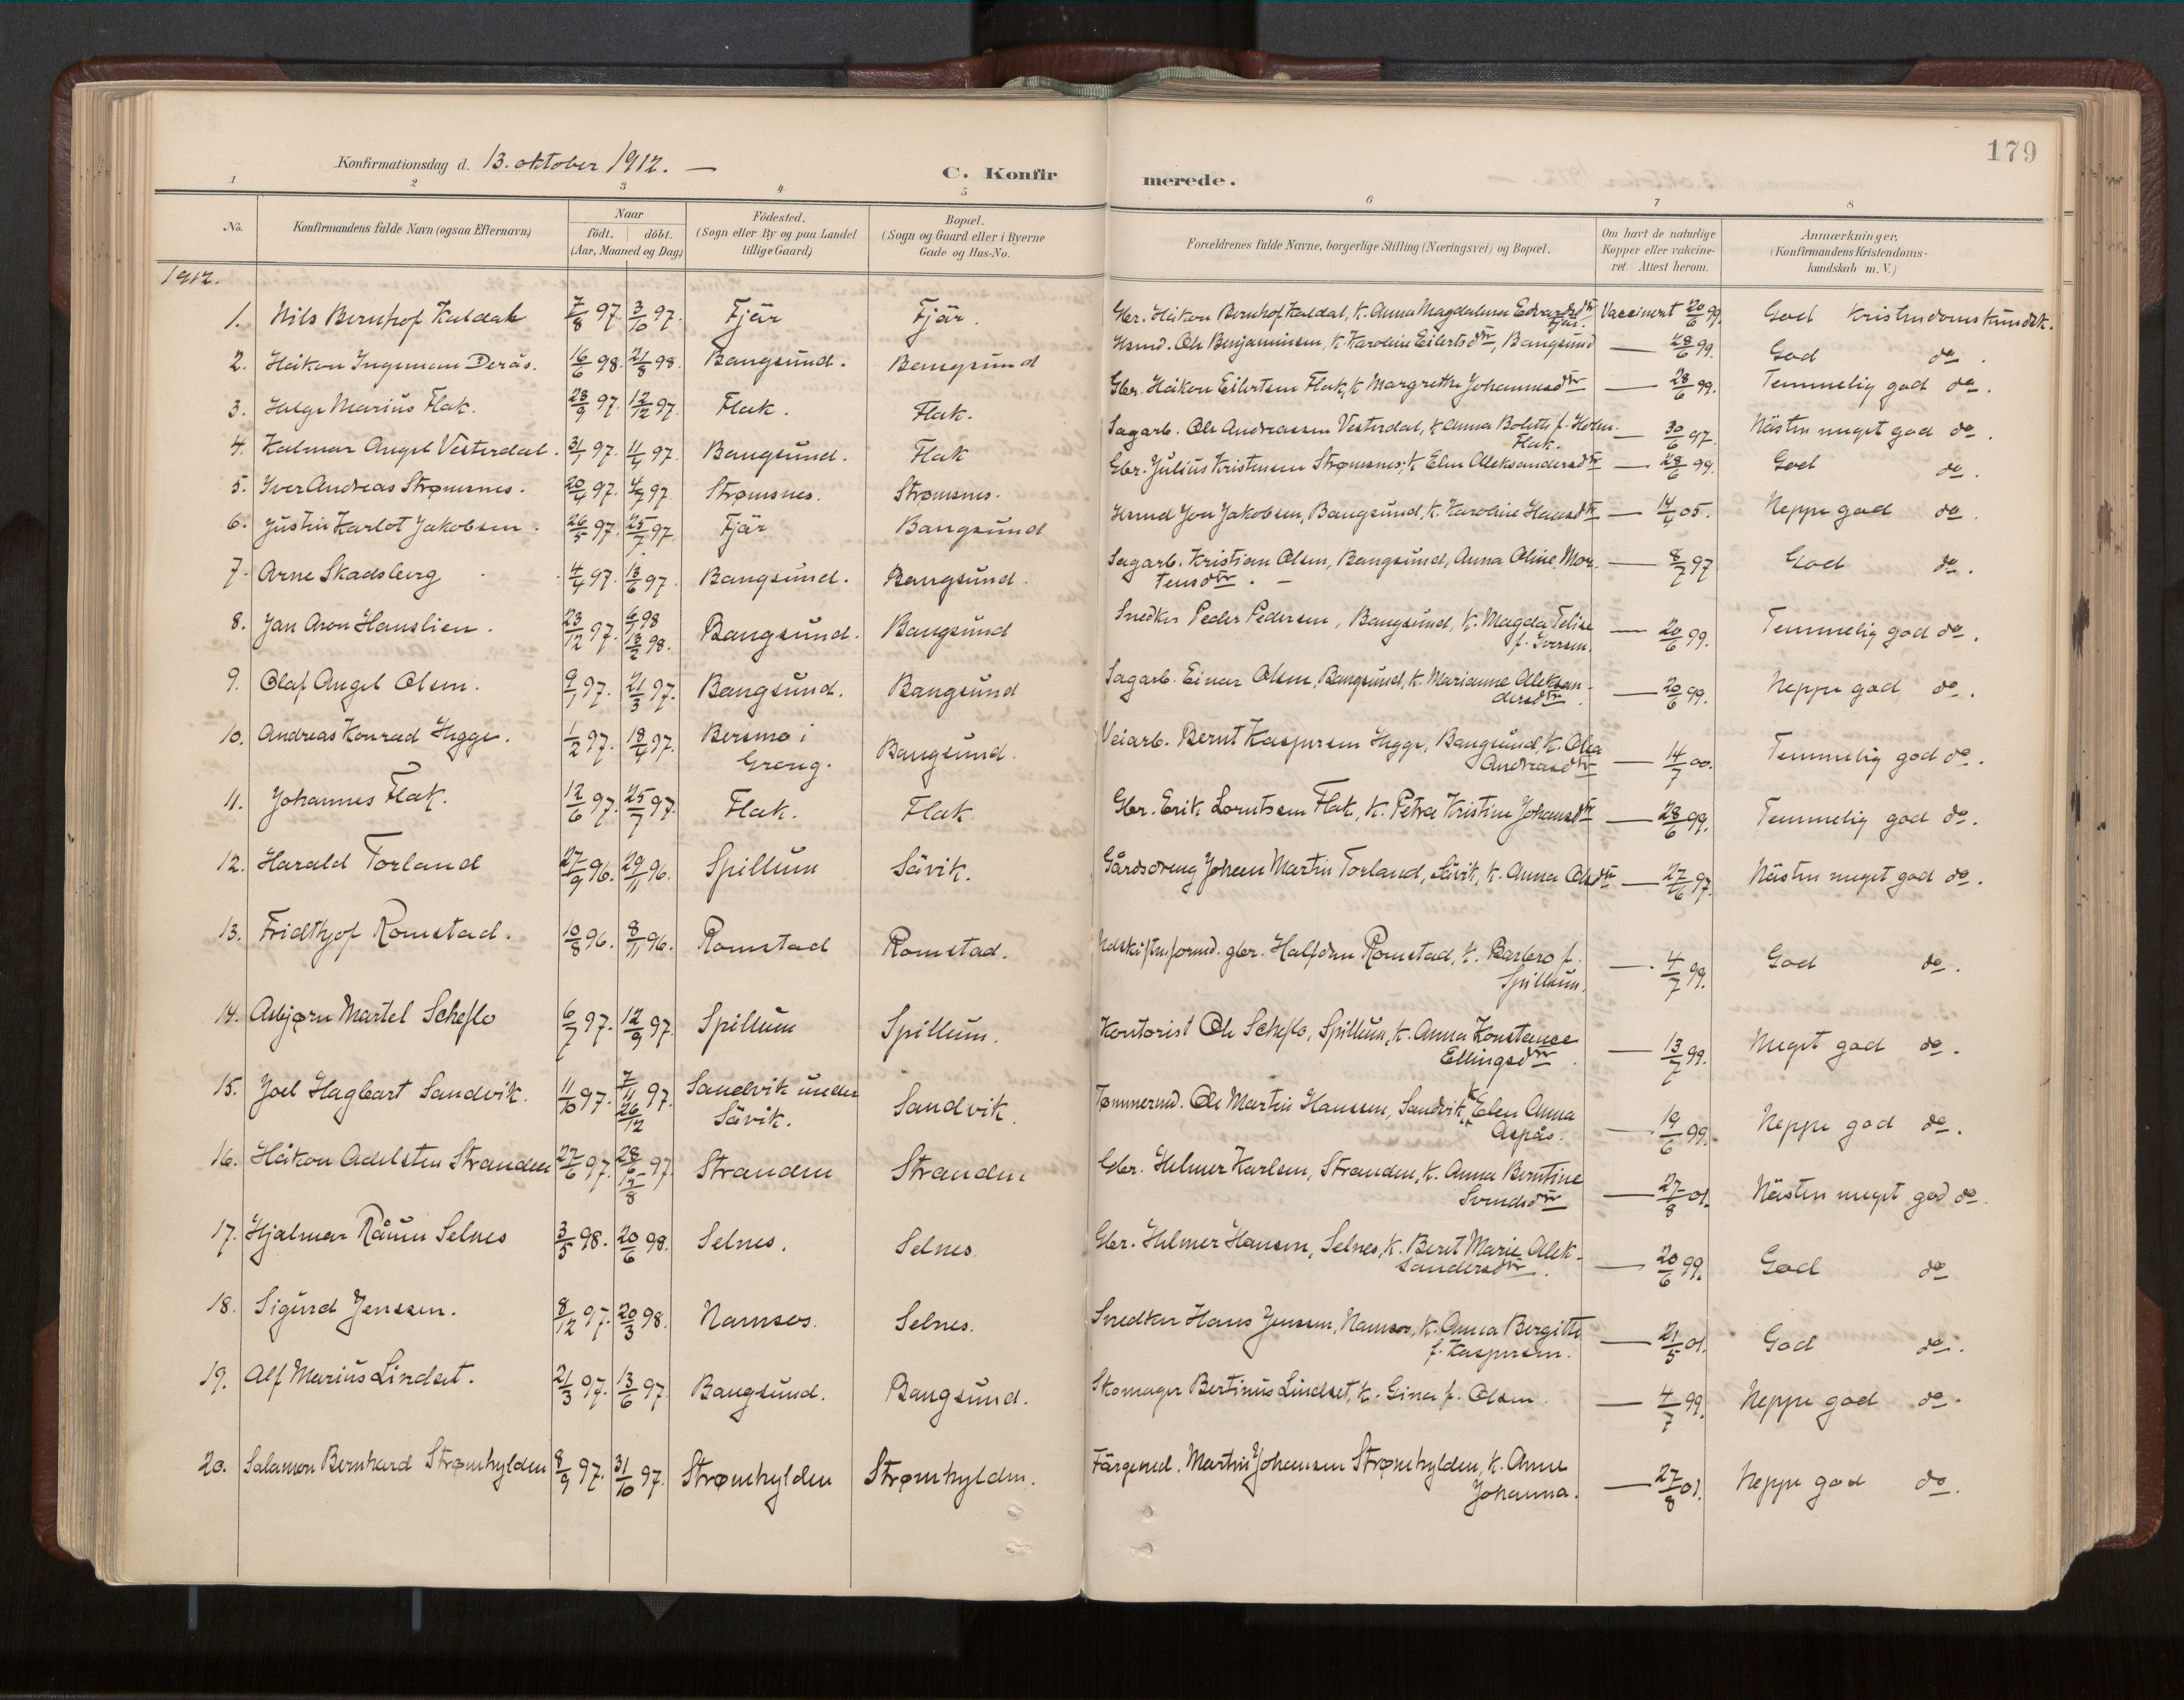 179
Konfirmationsdag d. 13. oktober 1912. —
C. Konfirmerede.
1 2 3 4 5 6 7 8
No. Konfirmandens fulde Navn (ogsaa Efternavn) Naar født. døbt. (Aar, Maaned og Dag) Fødested. (Sogn eller By og paa Landet tillige Gaard) Bopæl. (Sogn og Gaard eller i Byerne Gade og Hus-No. Forældrenes fulde Navne, borgerlige Stilling (Næringsvei) og Bopæl. Om havt de naturlige Kopper eller vakcineret. Attest herom. Anmærkninger, (Konfirmandens Kristendomskundskab m. V.)
1912.
1. Nils Bernhof Kaldal 7/8 97. 3/10 97. Fjär Fjär. Gbr. Håkon Bernhof Kaldal, k. Anna Magdalena Edvardsdtr Fjär. Vaccinert 20/6 99. God Kristendomskundsk.
2. Håkon Ingeman Derås. 16/6 98. 21/8 98. Bangsund. Bangsund Hsmd. Ole Benjaminsen, k. Karoline Eilertsdtr, Bangsund — 28/6 99. God do.
3. Helge Marius Flak. 28/9 97. 12/12 97. Flak. Flak. Gbr. Håkon Eilertsen Flak, k. Margrethe Johannesdtr — 28/6 99. Temmelig god do.
4. Kalmar Angel Vesterdal. 31/1 97. 11/4 97. Bangsund. Flak Sagarb. Ole Andreassen Vesterdal, k. Anna Bolette f. Holm. Flak. — 30/6 97. Nästen meget god do.
5. Iver Andreas Strømsnes. 20/4 97. 4/7 97. Strømsnes. Strømsnes. Gbr. Julius Kristensen Strømsnes, k. Elen Aleksandersdtr — 28/6 99. God do.
6. Justin Karlot Jakobsen. 26/5 97. 25/7 97. Fjär Bangsund Hsmd Jon Jakobsen, Bangsund, k. Karoline Hansdtr — 14/4 05. Neppe god do.
7. Arne Skadsberg 4/4 97. 13/6 97. Bangsund. Bangsund. Sagarb. Kristian Olsen, Bangsund, Anna Oline Mortensdtr. — — 8/7 97 God do.
8. Jan Aron Hanslien. 23/12 97. 6/1 98 13/2 98. Bangsund. Bangsund Snedker Peder Pedersen, Bangsund, k. Magda Felise f. Iversen. — 20/6 99. Temmelig god do.
9. Olaf Angel Olsen. 9/1 97. 21/3 97. Bangsund. Bangsund Sagarb. Einar Olsen, Bangsund, k. Marianne Aleksandersdtr. — 20/6 99. Neppe god do.
10. Andreas Konrad Hygge. 1/2 97. 18/4 97. Bersmo i Grong. Bangsund. Veiarb. Bernt Kaspersen Hygge, Bangsund, k. Olea Andreasdtr — 14/7 00. Temmelig god do.
11. Johannes Flak. 12/6 97. 25/7 97. Flak. Flak. Gbr. Erik Lorntsen Flak, k. Petra Kristine Johansdtr — 28/6 99. Temmelig god do.
12. Harald Torland 27/9 96. 29/11 96. Spillum Sävik. Gårdsdreng Johan Martin Torland, Sävik, k. Anna Olsdtr — 27/6 97. Nästen meget god do.
13. Fridthjof Romstad. 10/8 96. 8/11 96. Romstad Romstad. Udskiftnformd. gbr. Halfdan Romstad, k. Barbro f. Spillum. — 4/7 99. God do.
14. Asbjørn Martel Scheflo 6/7 97. 12/9 97. Spillum Spillum. Kontorist Ole Scheflo, Spillum, k. Anna Konstanse Ellingsdtr. — 13/7 99. Meget god do.
15. Joel Hagbart Sandvik. 11/10 97. 7/11 97. 26/12 Sandvik under Sävik. Sandvik. Tømmermd. Ole Martin Hanssen, Sandvik, k Elen Anna Aspås. — 19/6 99. Neppe god do.
16. Håkon Adelsten Stranden 27/6 97. 28/6 97. 15/8 Stranden Stranden Gbr. Helmer Karlsen, Stranden, k. Anna Berntine Svendsdtr — 27/8 01. Nästen meget god do.
17. Hjalmar Råum Selnes 3/5 98. 20/6 98. Selnes. Selnes. Gbr. Helmer Hansen, Selnes, k. Beret Marie Aleksandersdtr. — 20/6 99. God do
18. Sigurd Jenssen. 8/12 97. 20/3 98. Namsos. Selnes. Snedker Hans Jenssen, Namsos, k. Anna Bergitte f. Kaspersen. — 21/5 01. God do.
19. Alf Marius Lindset. 21/3 97. 13/6 97. Bangsund. Bangsund. Skomager Bertinus Lindset, k. Gina f. Olsen. — 4/7 99. Neppe god do.
20. Salamon Bernhard Strømhylden 8/9 97. 31/10 97. Strømhylden Strømhylden. Färgemd. Martin Johansen Strømhylden, k. Anne Johanna. — 27/8 01. Neppe god do.